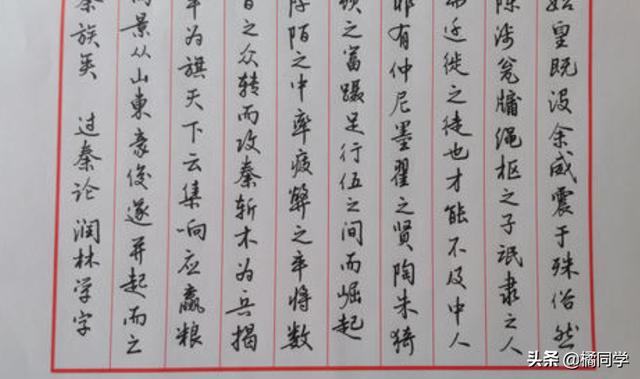 始皇既没余威震于殊俗然
陈涉瓮牖绳枢之子氓隶之人
而迁徙之徒也才能不及中人
有仲尼墨翟之贤陶朱猗
顿之富蹑足行伍之间而崛起
陌之中率疲弊之卒将数
百之众转而攻秦斩木为兵揭
竿为旗天下云集响应赢粮
而景从山東豪俊遂并起而之
秦族矣 过秦论 润林学字
头条 @橘同学